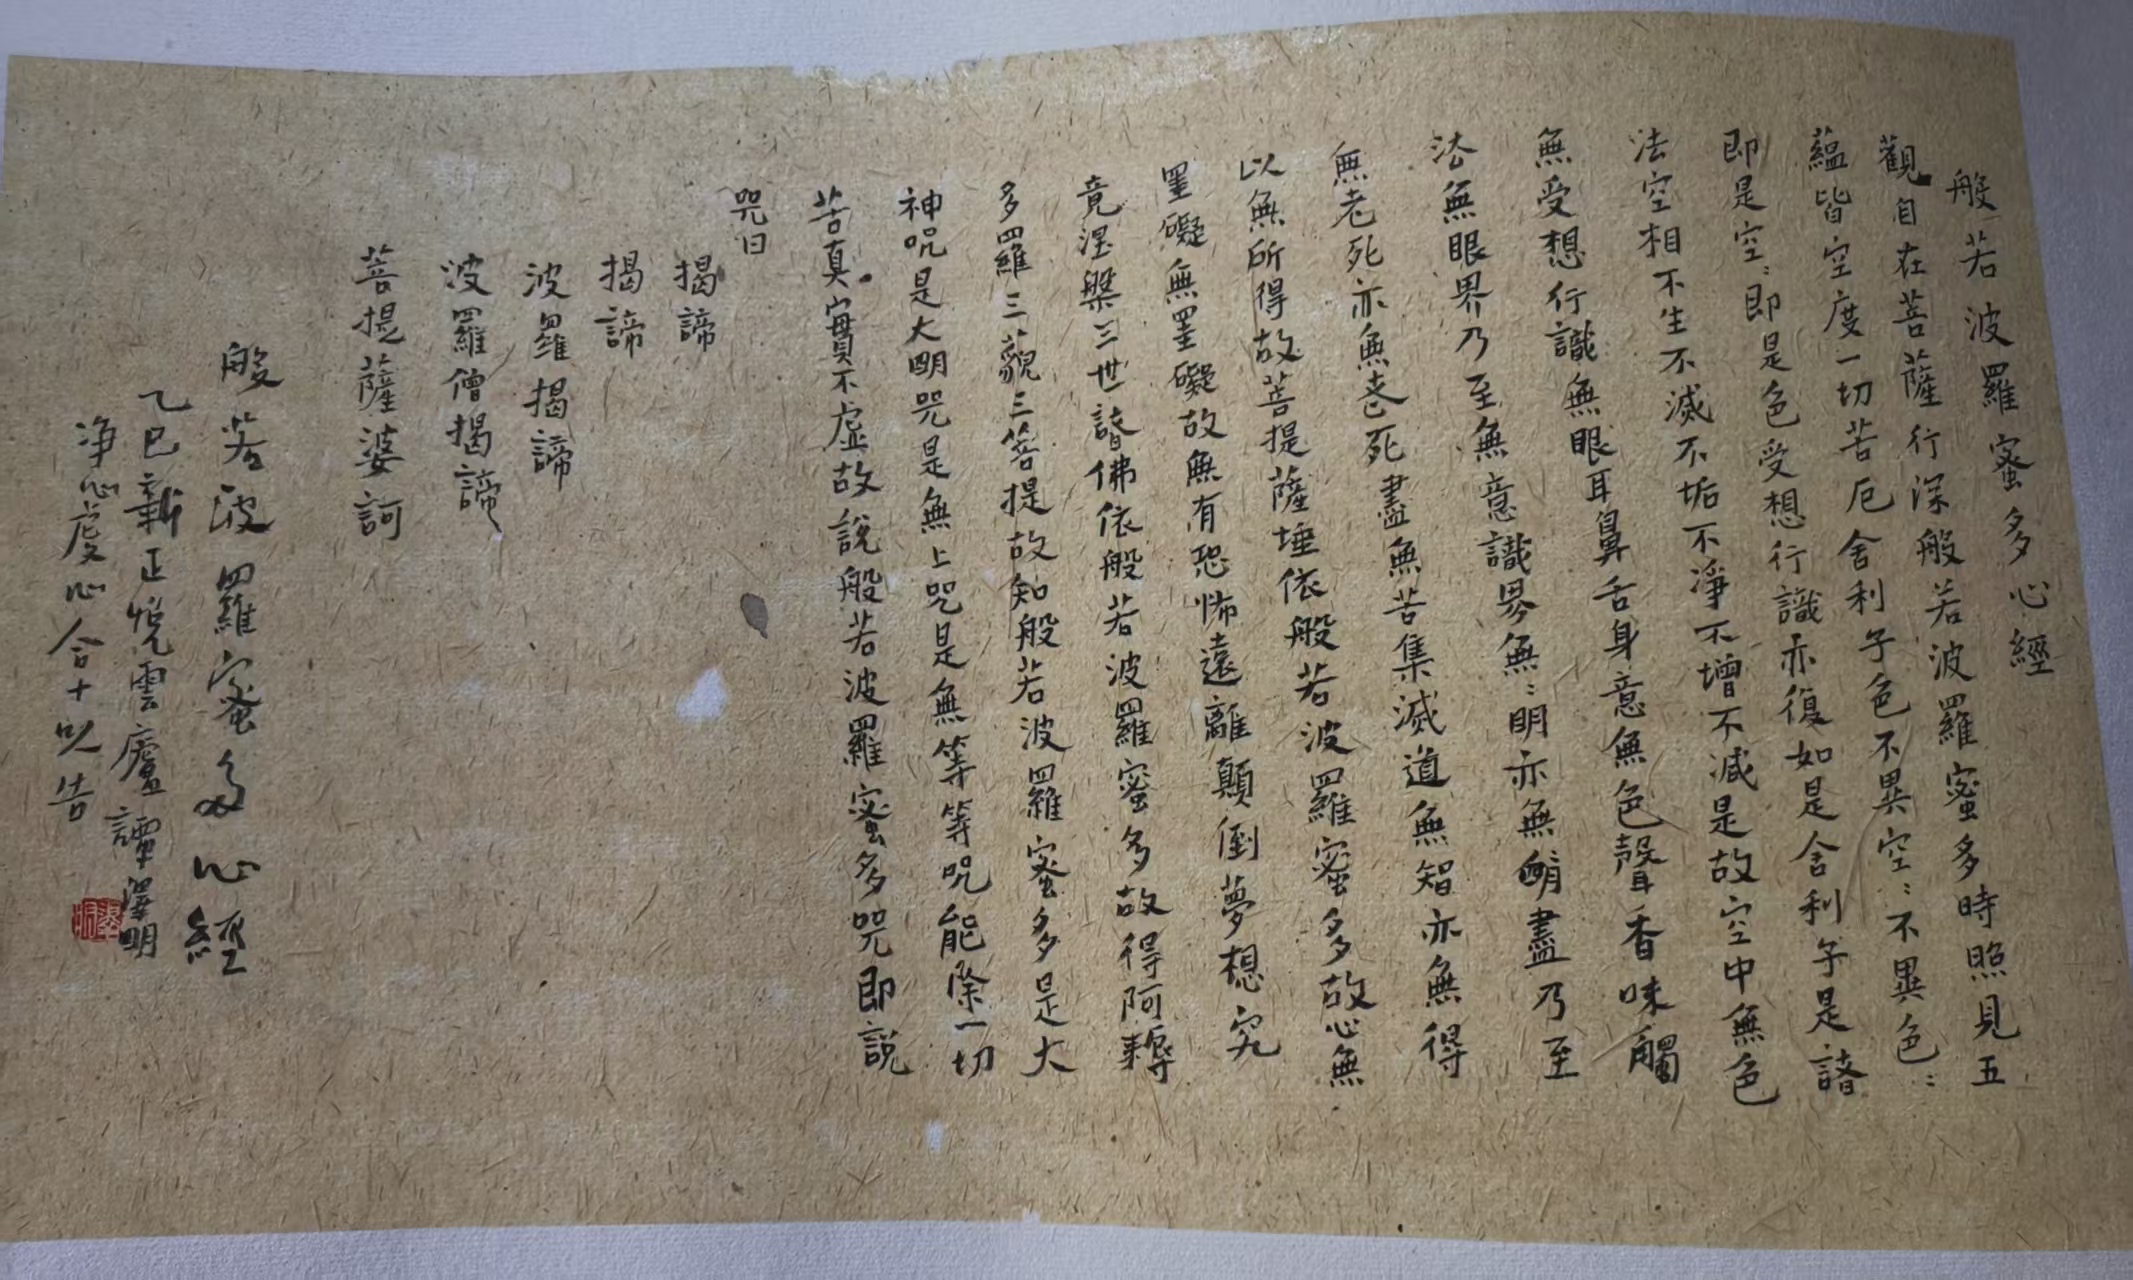 般若波羅蜜多心經
觀自在菩薩行深般若波羅蜜多時照見五
蘊皆空度一切苦厄舍利子色不異空〻不異色〻
即是空〻即是色受想行識亦復如是舍利子是諸
法空相不生不滅不垢不淨不增不減是故空中無色
無受想行識無眼耳鼻舌身意無色聲香味觸
法無眼界乃至無意識界無〻明亦無明盡乃至
無老死亦無老死盡無苦集滅道無智亦無得
以無所得故菩提薩埵依般若波羅蜜多故心無
罣礙無罣礙故無有恐怖遠離顛倒夢想究
竟涅槃三世諸佛依般若波羅蜜多故得阿耨
多羅三藐三菩提故知般若波羅蜜多是大
神咒是大明咒是無上咒是無等等咒能除一切
苦真實不虛故說般若波羅蜜多咒即說
咒曰
揭諦
揭諦
波羅揭諦
波羅僧揭諦
菩提薩婆訶
般若波羅蜜多心經
乙巳新正悅雲廬譚澤明
净心虔心合十以告